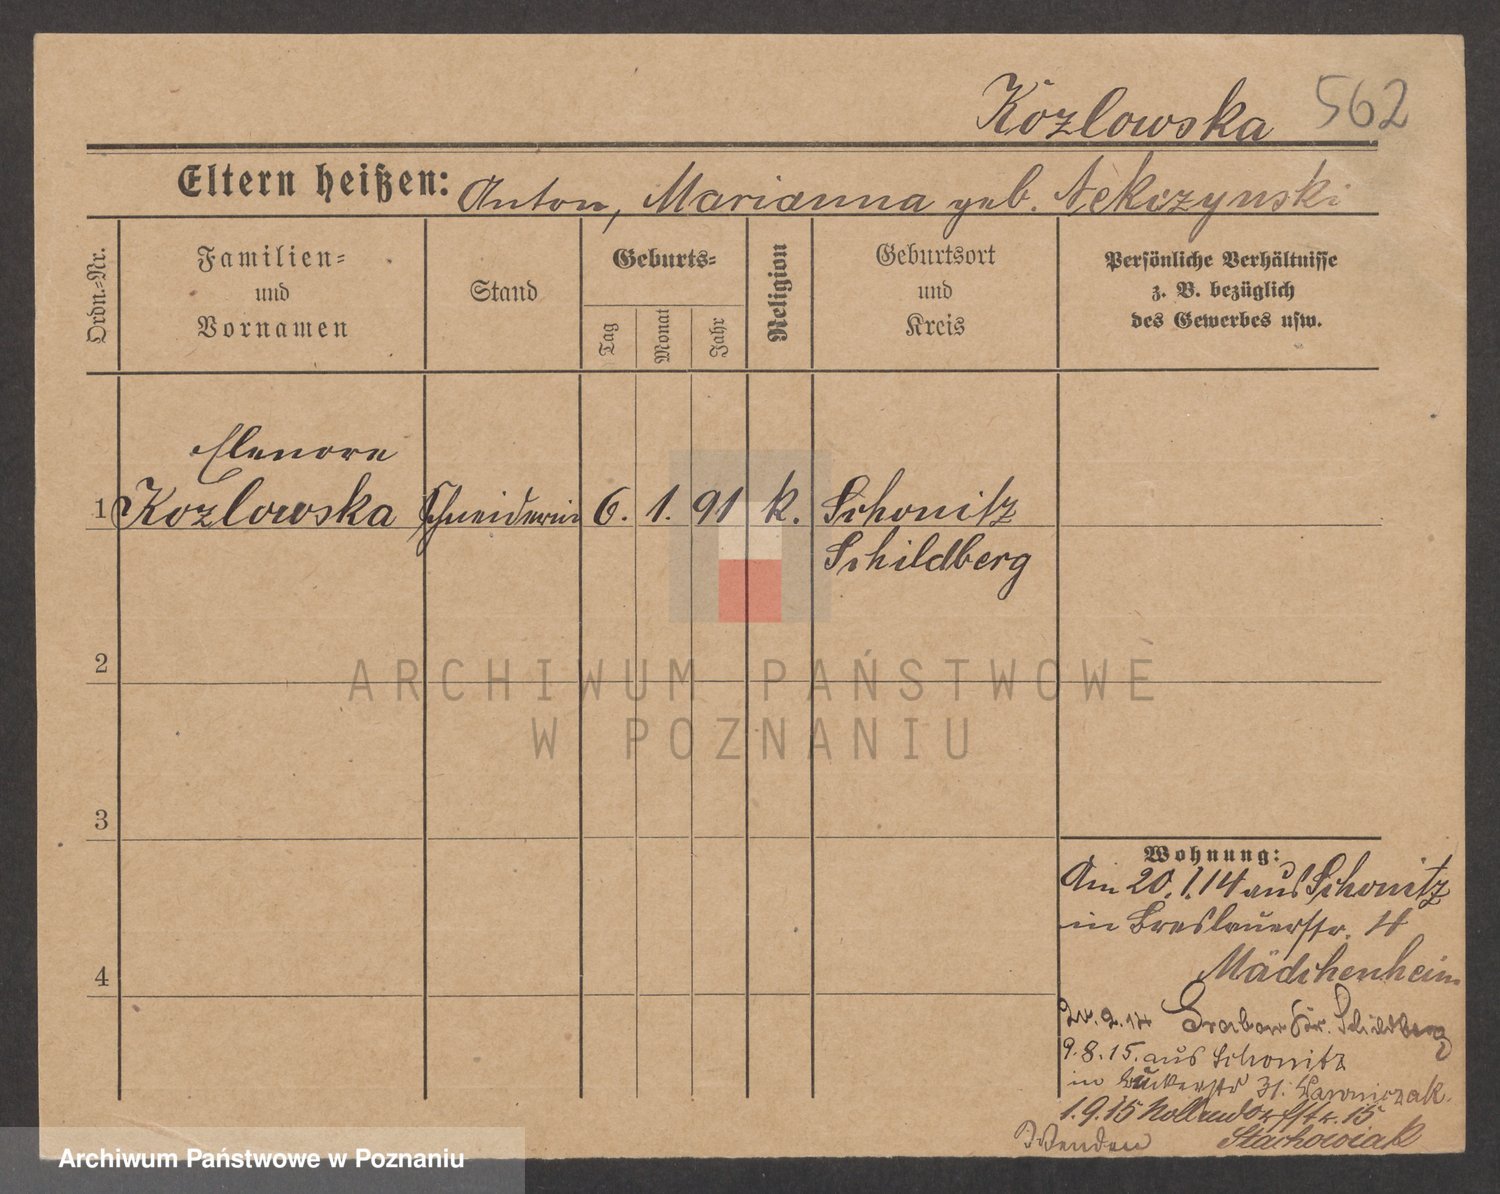 Kozlowska 562
Eltern heißen: Anton, Marianna geb. Nekczynski
Ordn.-Nr.
Familien-
und
Vornamen
Stand
Geburts-
Tag
Monat
Jahr
Religion
Geburtsort
und
Kreis
Persönliche Verhältnisse
z. B. bezüglich
des Gewerbes usw.
Elenore
1 Kozlowska Schneiderin 6. 1. 91 k. Schonitz
Schildberg
2
3
4
ARCHIWUM PAŃSTWOWE
W POZNANIU
Wohnung:
Am 20.1.14 aus Schonitz
in Breslauerstr. 4
Mädchenheim
2.14 Grabow Kr. Schildberg
9.8.15. aus Schonitz
in Bäckerstr 31. Wawniczak.
1.9.15 15
Wenden Stachowiak
Archiwum Państwowe w Poznaniu